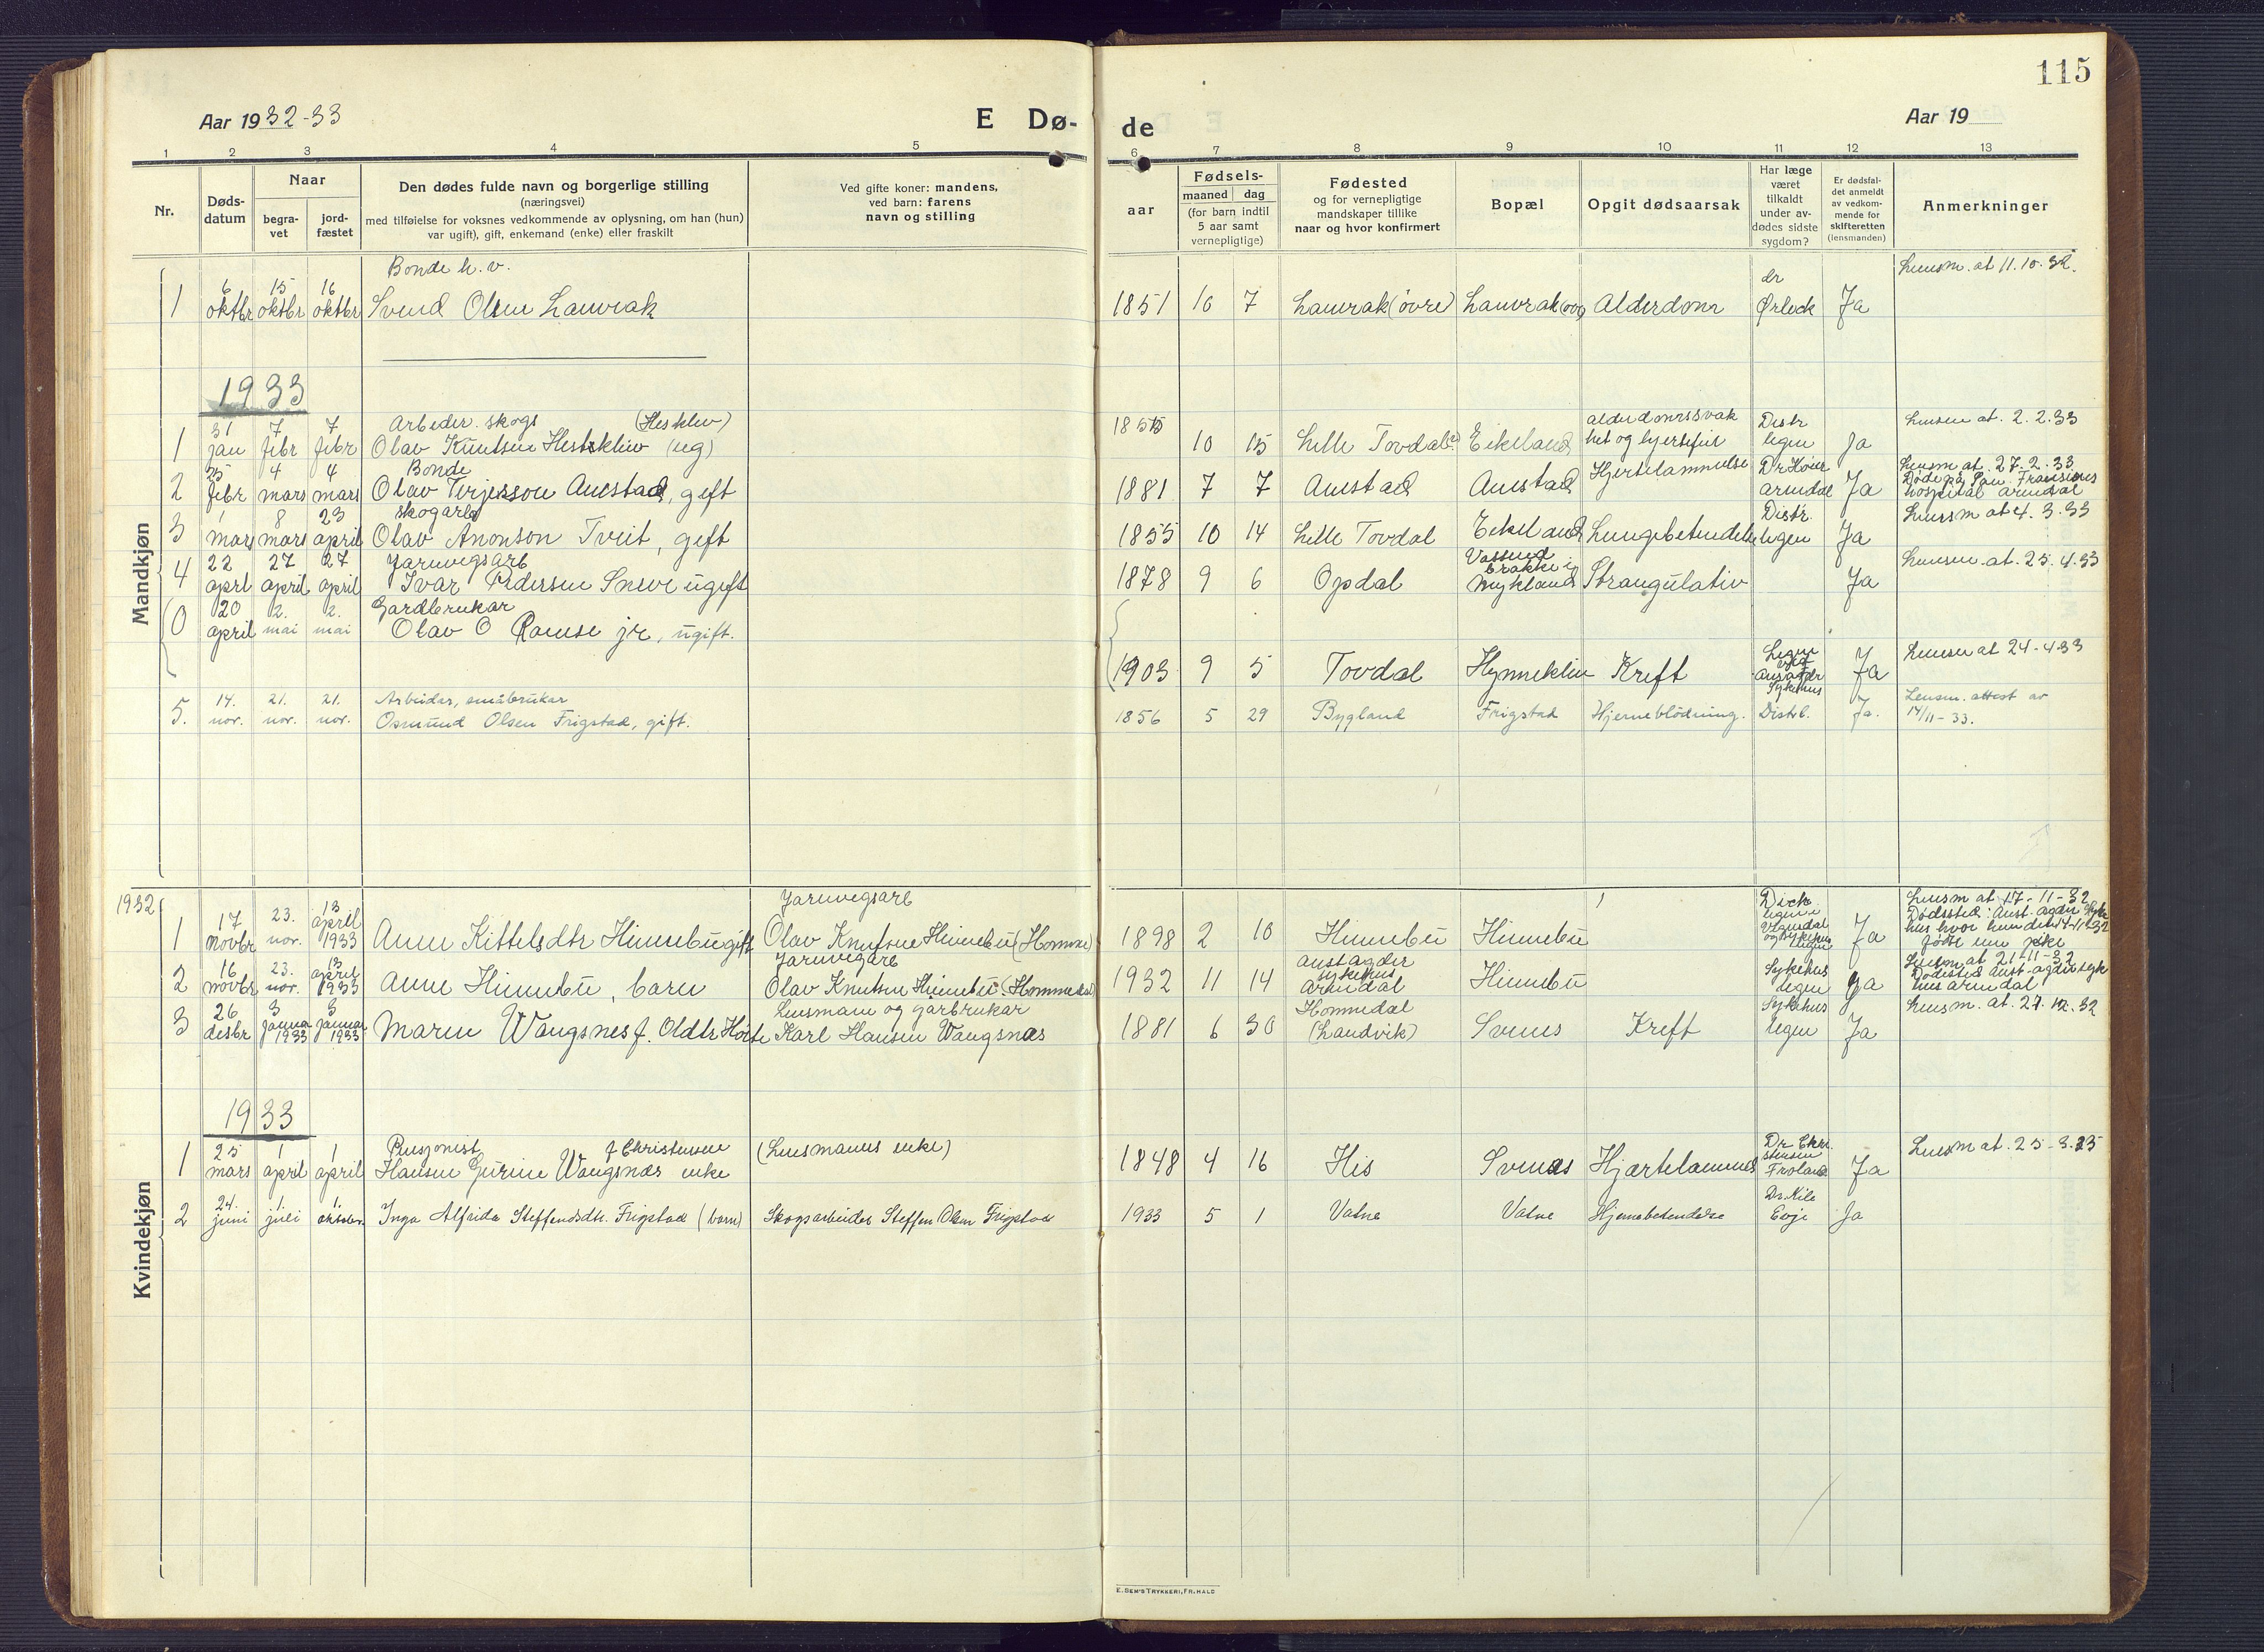 115
Aar 1932-33
E Dø-
de
Aar 19
1 2 3 4 5 6 7 8 9 10 11 12 13
Nr.
Døds-
datum
Naar
begra-
vet
jord-
fæstet
Den dødes fulde navn og borgerlige stilling
(næringsvei)
med tilføielse for voksnes vedkommende av oplysning, om han (hun)
var ugift), gift, enkemand (enke) eller fraskilt
Ved gifte koner: mandens,
ved barn: farens
navn og stilling
Fødsels-
aar
maaned dag
(for barn indtil
5 aar samt
vernepligtige)
Fødested
og for vernepligtige
mandskaper tillike
naar og hvor konfirmert
Bopæl
Opgit dødsaarsak
Har læge
været
tilkaldt
under av-
dødes sidste
sygdom?
Er dødsfal-
det anmeldt
av vedkom-
mende for
skifteretten
(lensmanden)
Anmerkninger
Mandkjøn
Bonde h. v. dr Lensm. at 11.10.32.
1 6 oktbr 15 oktbr 16 oktbr Svend Olsen Lauvrak 1851 10 7 Lauvrak (øvre) Lauvrak Alderdom Ørbeck Ja
1933
Arbeder. skogs (Hesklev) alderdomssvak Distr Lensm at. 2.2.33
1 31 jan 7 febr 7 febr Olav Knutsen Hestsklev (ug) 1855 10 15 Lille Tovdal Eikeland het og hjertefeil legen Ja
Bonde Hjertelammelse Lensm at. 27.2.33
2 25 febr 4 mars 4 mars Olav Terjesson Austad, gift 1881 7 7 Austad Austad Dr arendal Ja hospital arendal
skogarb Distr. Lensm at 4.3.33
3 1 mars 8 mars 23 april Olav Anonson Tveit, gift 1855 10 14 Lille Tovdal Eikeland Lungebetendelse legen Ja
Jarnvegsarb Lensm at. 25.4.33
4 22 aprl 27 april 27 april Ivar Pedersen Sneve ugift 1878 9 6 Opdal brakke i Mykland Strangulativ Ja
Gardbrukar
0 20 april 2. mai 2. mai Olav O Ramse jr, ugift.
1903 9 5 Tovdal Hynneklev Kreft Legen Sykehus Ja Lensm at 24-4-33
Arbeidar, småbrukar Lensm. attest av
5. 14. nov. 21. nov. 21. nov. Osmund Olsen Frigstad, gift. 1856 5 29 Bygland Frigstad Hjerneblödning. Distrl. Ja. 14/11-33.
Kvindekjøn
1932
Jarnvegsarb Lensm at 17-11-32
1 17 novbr 23. nov. 13 april 1933 Anne Kittelsdtr Hinnebu gift Olav Knutsen Hinnebu (Homme) 1898 2 10 Hinnebu Hinnebu Ja
Jarnvegarb Aust agder sykehus Lensm at 21-11-32
2 16 novbr 23. nov. 13 april 1933 Anne Hinnebu, barn Olav Knutsen Hinnebu 1932 11 14 arendal Hinnebu Sykehus legen Ja hus arendal
Lensmann og garbrukar Hommedal Sykehus Lensm. at. 27.12.32
3 26 desbr 3 januar 1933 3 januar 1933 Maren Wangsnes f. Oldtr Karl Hansen Wangsnes 1881 6 30 (Landvik) Svenes Kreft legen Ja
1933
Pensjonist f Christensen (Lensmanns enke) Lensm at. 25-3.33
1 25 mars 1 april 1 april Hansen Gurine Wangsnæs enke 1848 4 16 His Svenæs Hjærtelammelse Froland Ja
2 24. juni 1. juli 1. oktober. Inga Alfrida Steffensdtr. Frigstad (barn) Skogsarbeider Steffen Olsen Frigstad 1933 5 1 Vatne Vatne Hjernebetendelse Dr. Kile Evje Ja
E. SEM'S TRYKKERI, FR.HALD